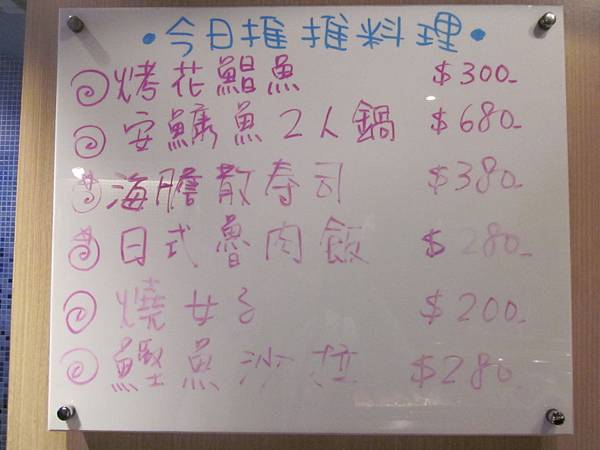 •今日推推料理•
烤花鯧魚 $300-
安鱇魚2人鍋 $680-
海膽散寿司 $380-
日式魯肉飯 $280-
燒女子 $200-
鰹魚沙拉 $280-